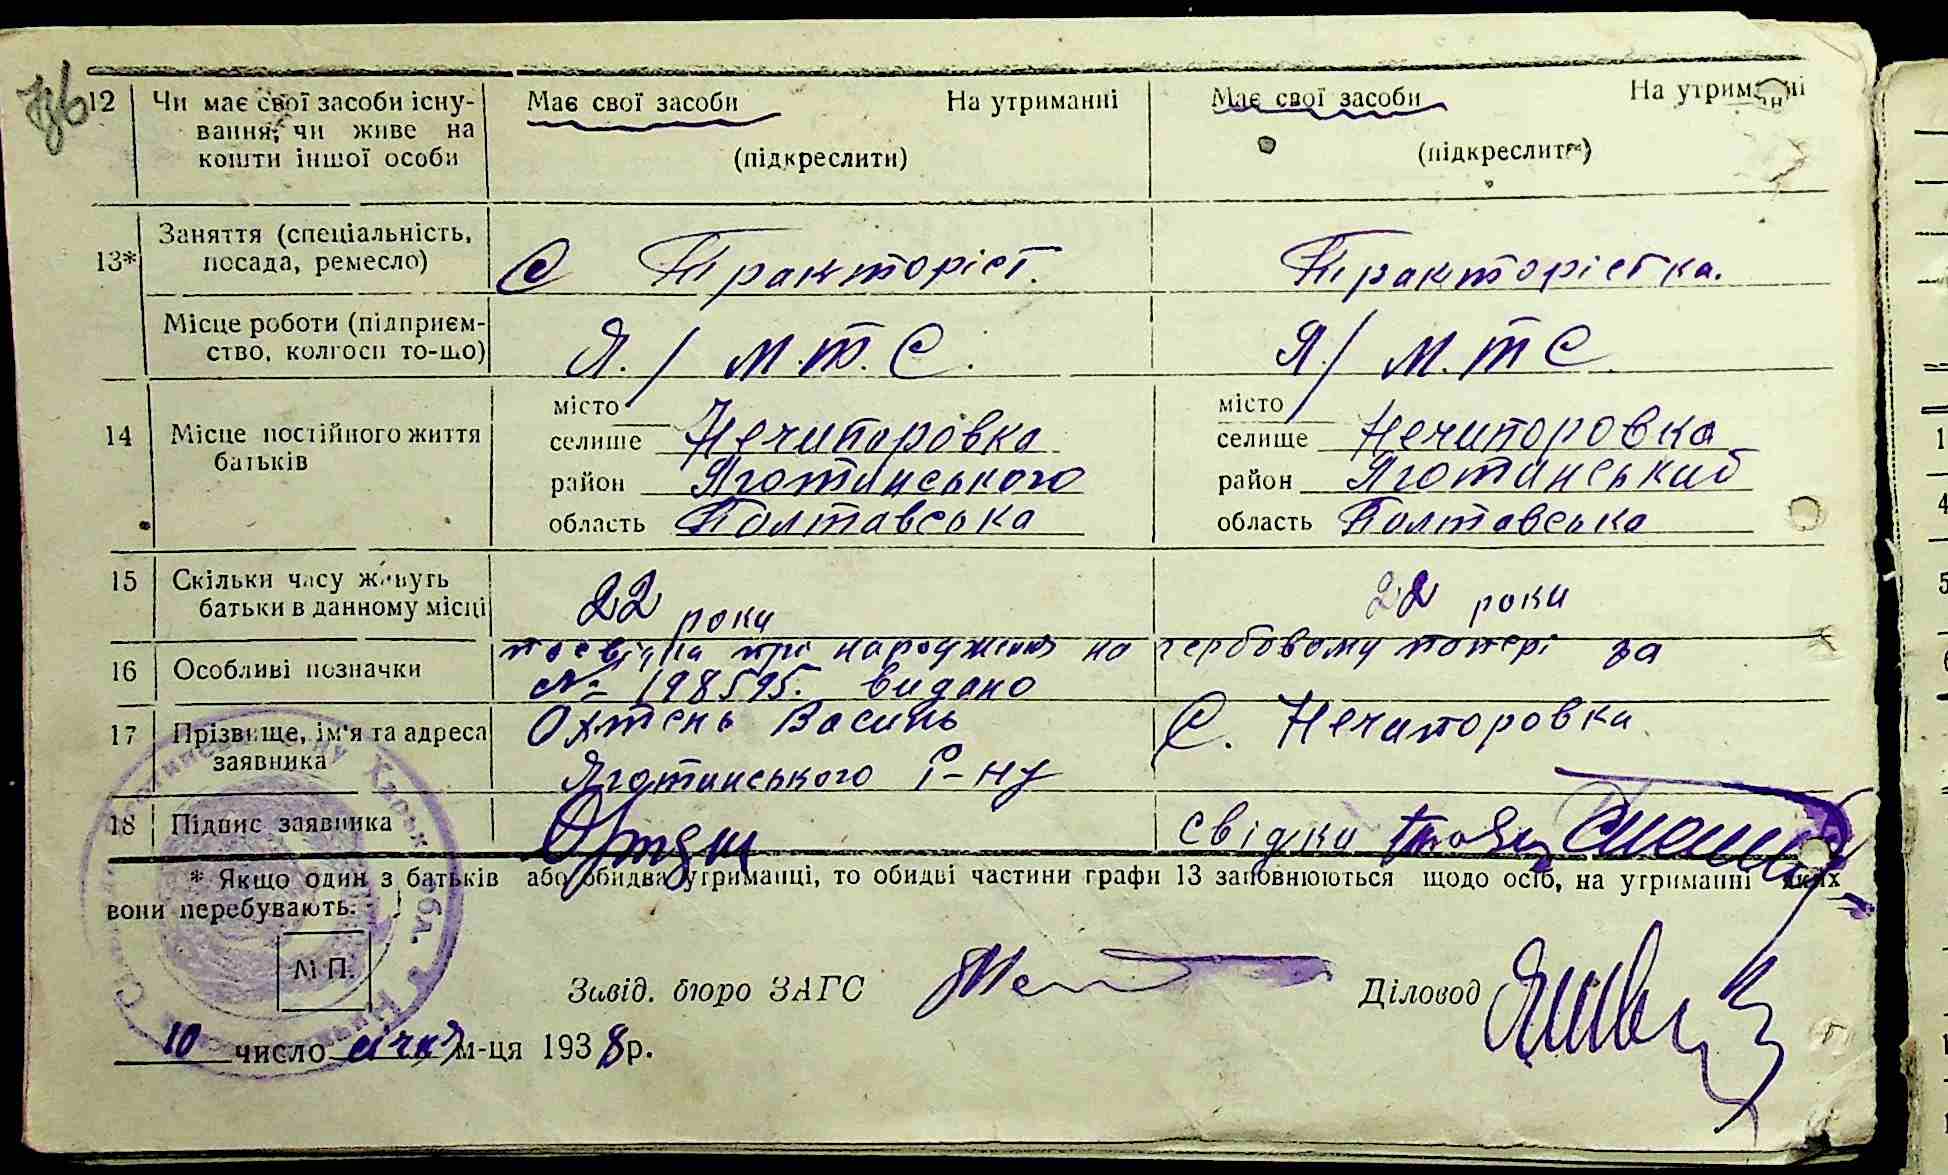 12 Чи має свої засоби існу- Має свої засоби На утриманні Має свої засоби На утриманні
вання, чи живе на
кошти іншої особи (підкреслити) (підкреслити)
13* Заняття (спеціальність, посада, ремесло) С Тракторіст. Тракторістка.
Місце роботи (підприєм-
ство, колгосп то-що) Я./ М.Т.С. Я/ М.Т С
місто місто
14 Місце постійного життя селище Нечипоровка селище Нечипоровка
батьків район Яготинського район Яготинський
область Полтавська область Полтавська
15 Скільки часу живуть
батьки в данному місці 22 роки 22 роки
посвідка про народження на гербовому попері за
16 Особливі позначки № 198595. видано
17 Прізвище, ім'я та адреса Охтень Василь С. Нечипоровка
заявника Яготинського Р-ну
18 Підпис заявника свідки
* Якщо один з батьків або обидва утриманці, то обидві частини графи 13 заповнюються щодо осіб, на утриманні яких
вони перебувають.
М.П.
Завід. бюро ЗАГС Діловод
10 число січня м-ця 1938 р.